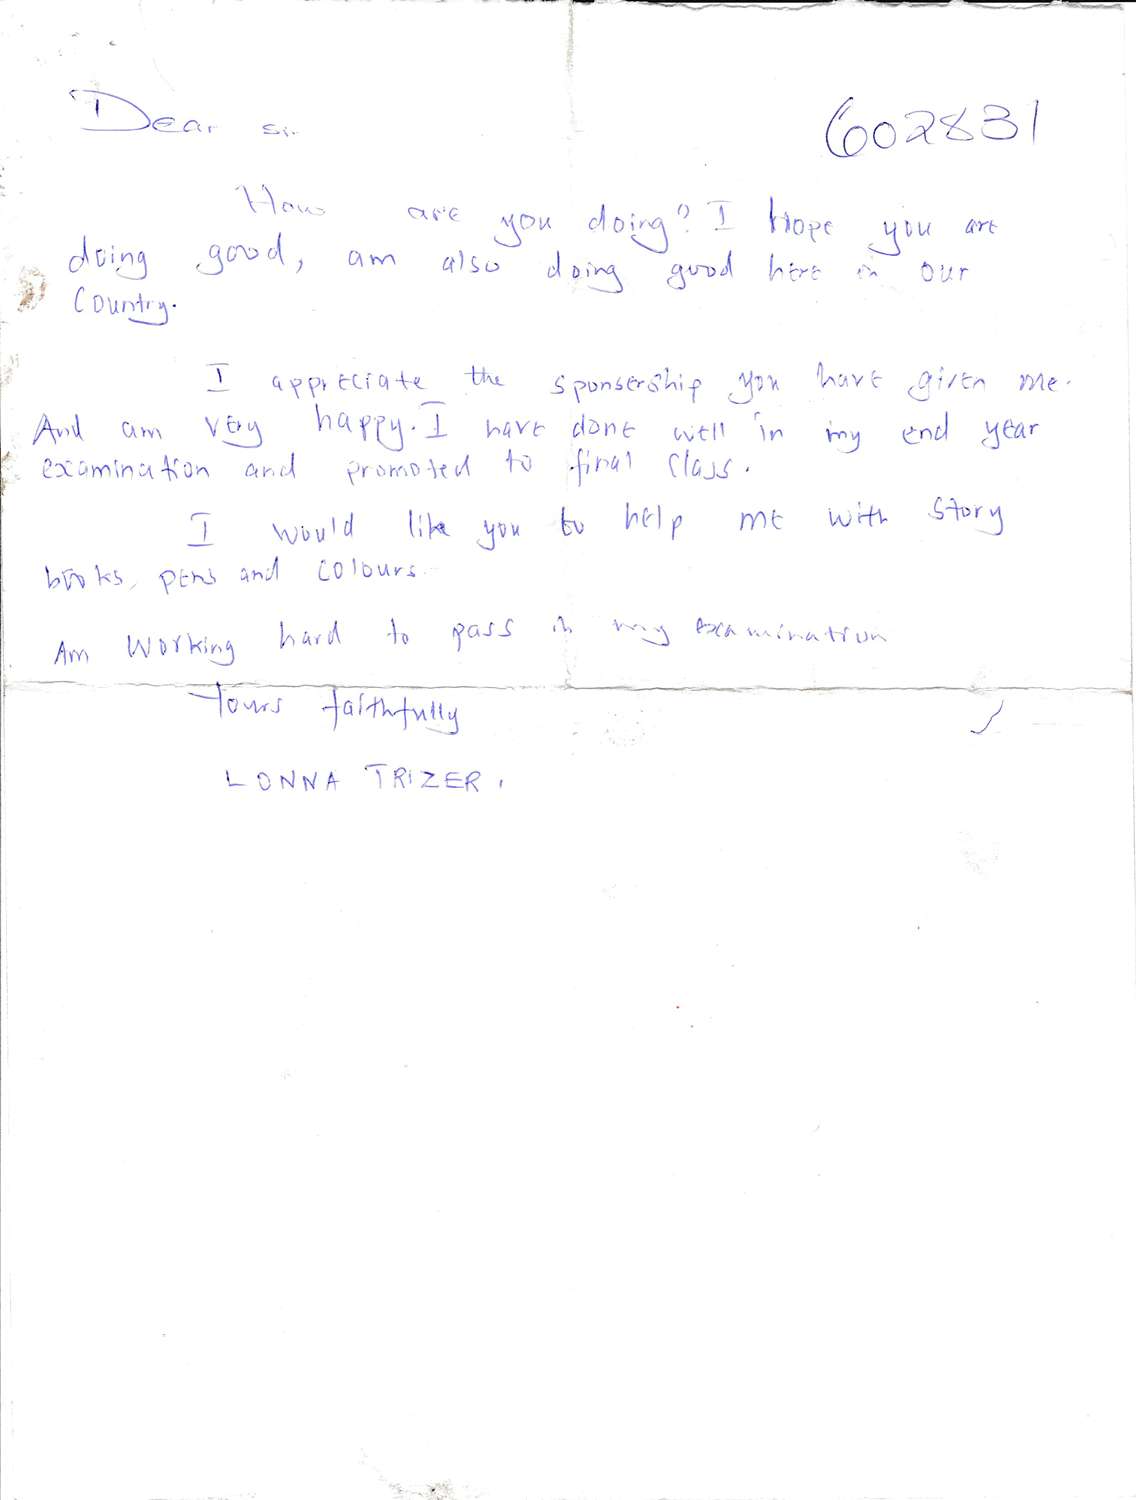 Dear sir
602831
How are you doing? I Hope you are
doing good, am also doing good here in our
Country.
I appreciate the sponsership you have given me.
And am very happy. I have done well in my end year
examination and promoted to final class.
I would like you to help me with story
books, pens and colours.
Am working hard to pass in my examination
Yours faithfully
LONNA TRIZER.